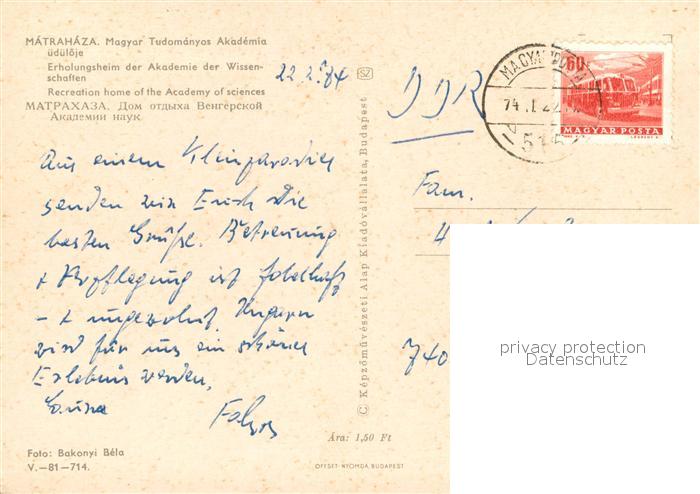 MÁTRAHÁZA. Magyar Tudományos Akadémia
üdülője
Erholungsheim der Akademie der Wissen-
schaften
Recreation home of the Academy of sciences
МАТРАХАЗА. Дом отдыха Венгерской
Академии наук
22.1.74
Aus einem Kleinparadies
senden wir Euch die
besten Grüße. Betreuung
+ Verpflegung ist fabelhaft
– + ungewohnt. Ungarn
wird für uns ein schönes
Erlebnis werden.
Eure
Foto: Bakonyi Béla
V.—81—714.
SZ
© Képzőművészeti Alap Kiadóvállalata, Budapest
Ára: 1,50 Ft
OFFSET-NYOMDA, BUDAPEST
DDR
74 .I. 22.
515
60f
MAGYAR POSTA
Fam.
740
privacy protection
Datenschutz